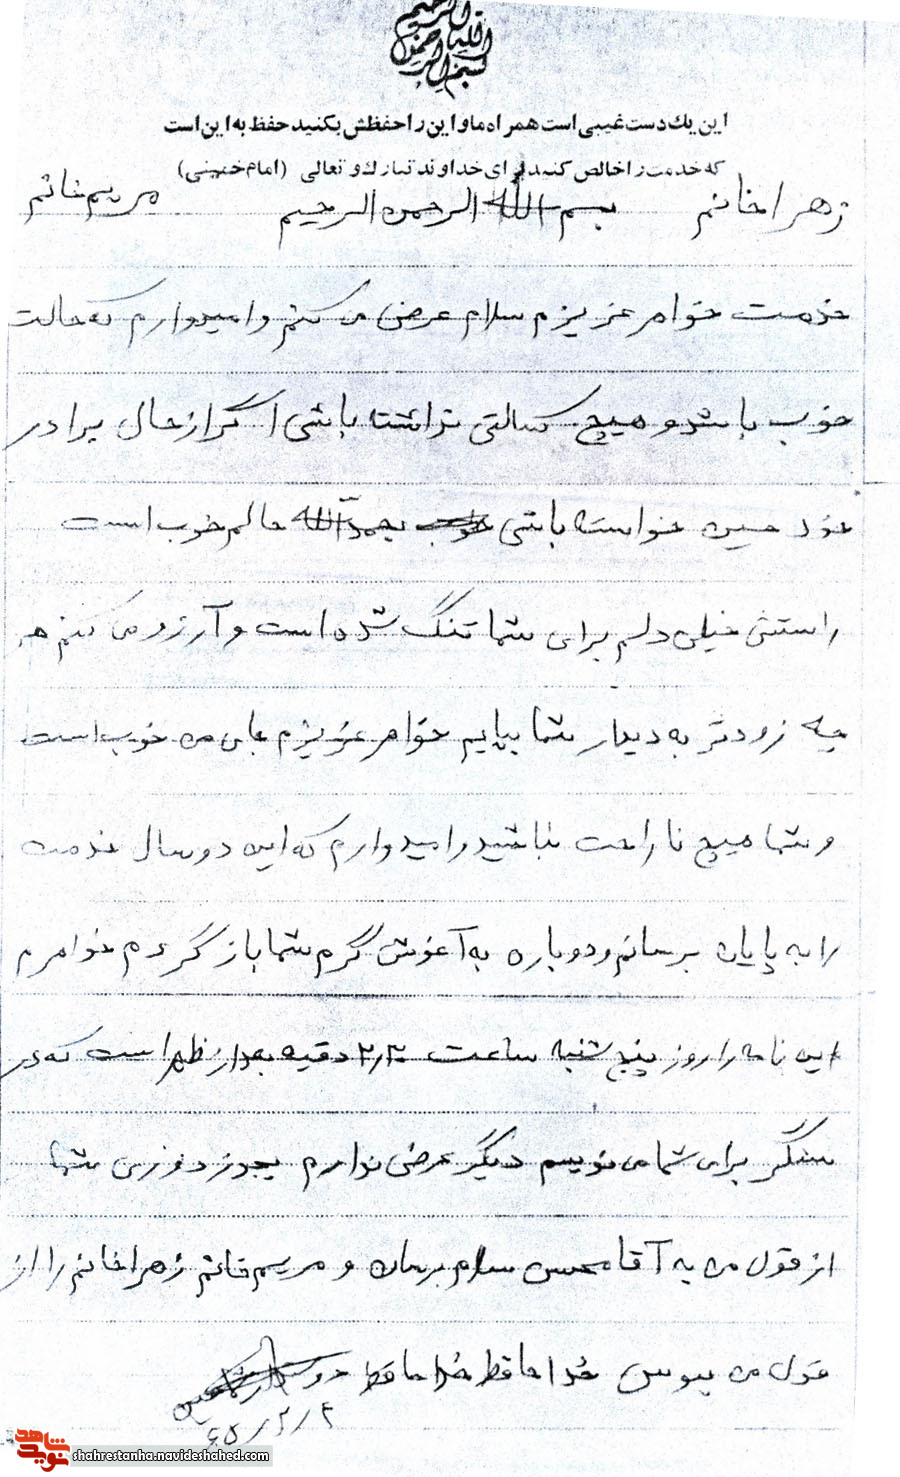 بسم الله الرحمن الرحیم
این یک دست غیبی است همراه ما و این را حفظش بکنید حفظ به این است
که خدمت را خالص کنید برای خداوند تبارک و تعالی (امام خمینی)
زهرا خانم بسم الله الرحمن الرحیم مریم خانم
خدمت خواهر عزیزم سلام عرض می کنم و امیدوارم که حالت
خوب باشد و هیچ کسالتی نداشته باشی اگر از حال برادر
خود حسین خواسته باشی خوب بحمدالله حالم خوب است
راستش خیلی دلم برای شما تنگ شده است و آرزو می کنم هر
چه زودتر به دیدار شما بیایم خواهر عزیزم جای من خوب است
و شما هیچ ناراحت نباشید و امیدوارم که این دو سال خدمت
را به پایان برسانم و دوباره به آغوش گرم شما باز گردم خواهرم
این نامه را روز پنج شنبه ساعت ۲٫۲۰ دقیقه بعداز ظهر است که در
سنگر برای شما می نویسم دیگر عرضی ندارم بجوز دوزری شما
از قول من به آقا محسن سلام برسان و مریم خانم زهرا خانم را از
قول من ببوس خداحافظ خداحافظ
۶۵/۲/۴
نوید شاهد
shahrestanha.navideshahed.com